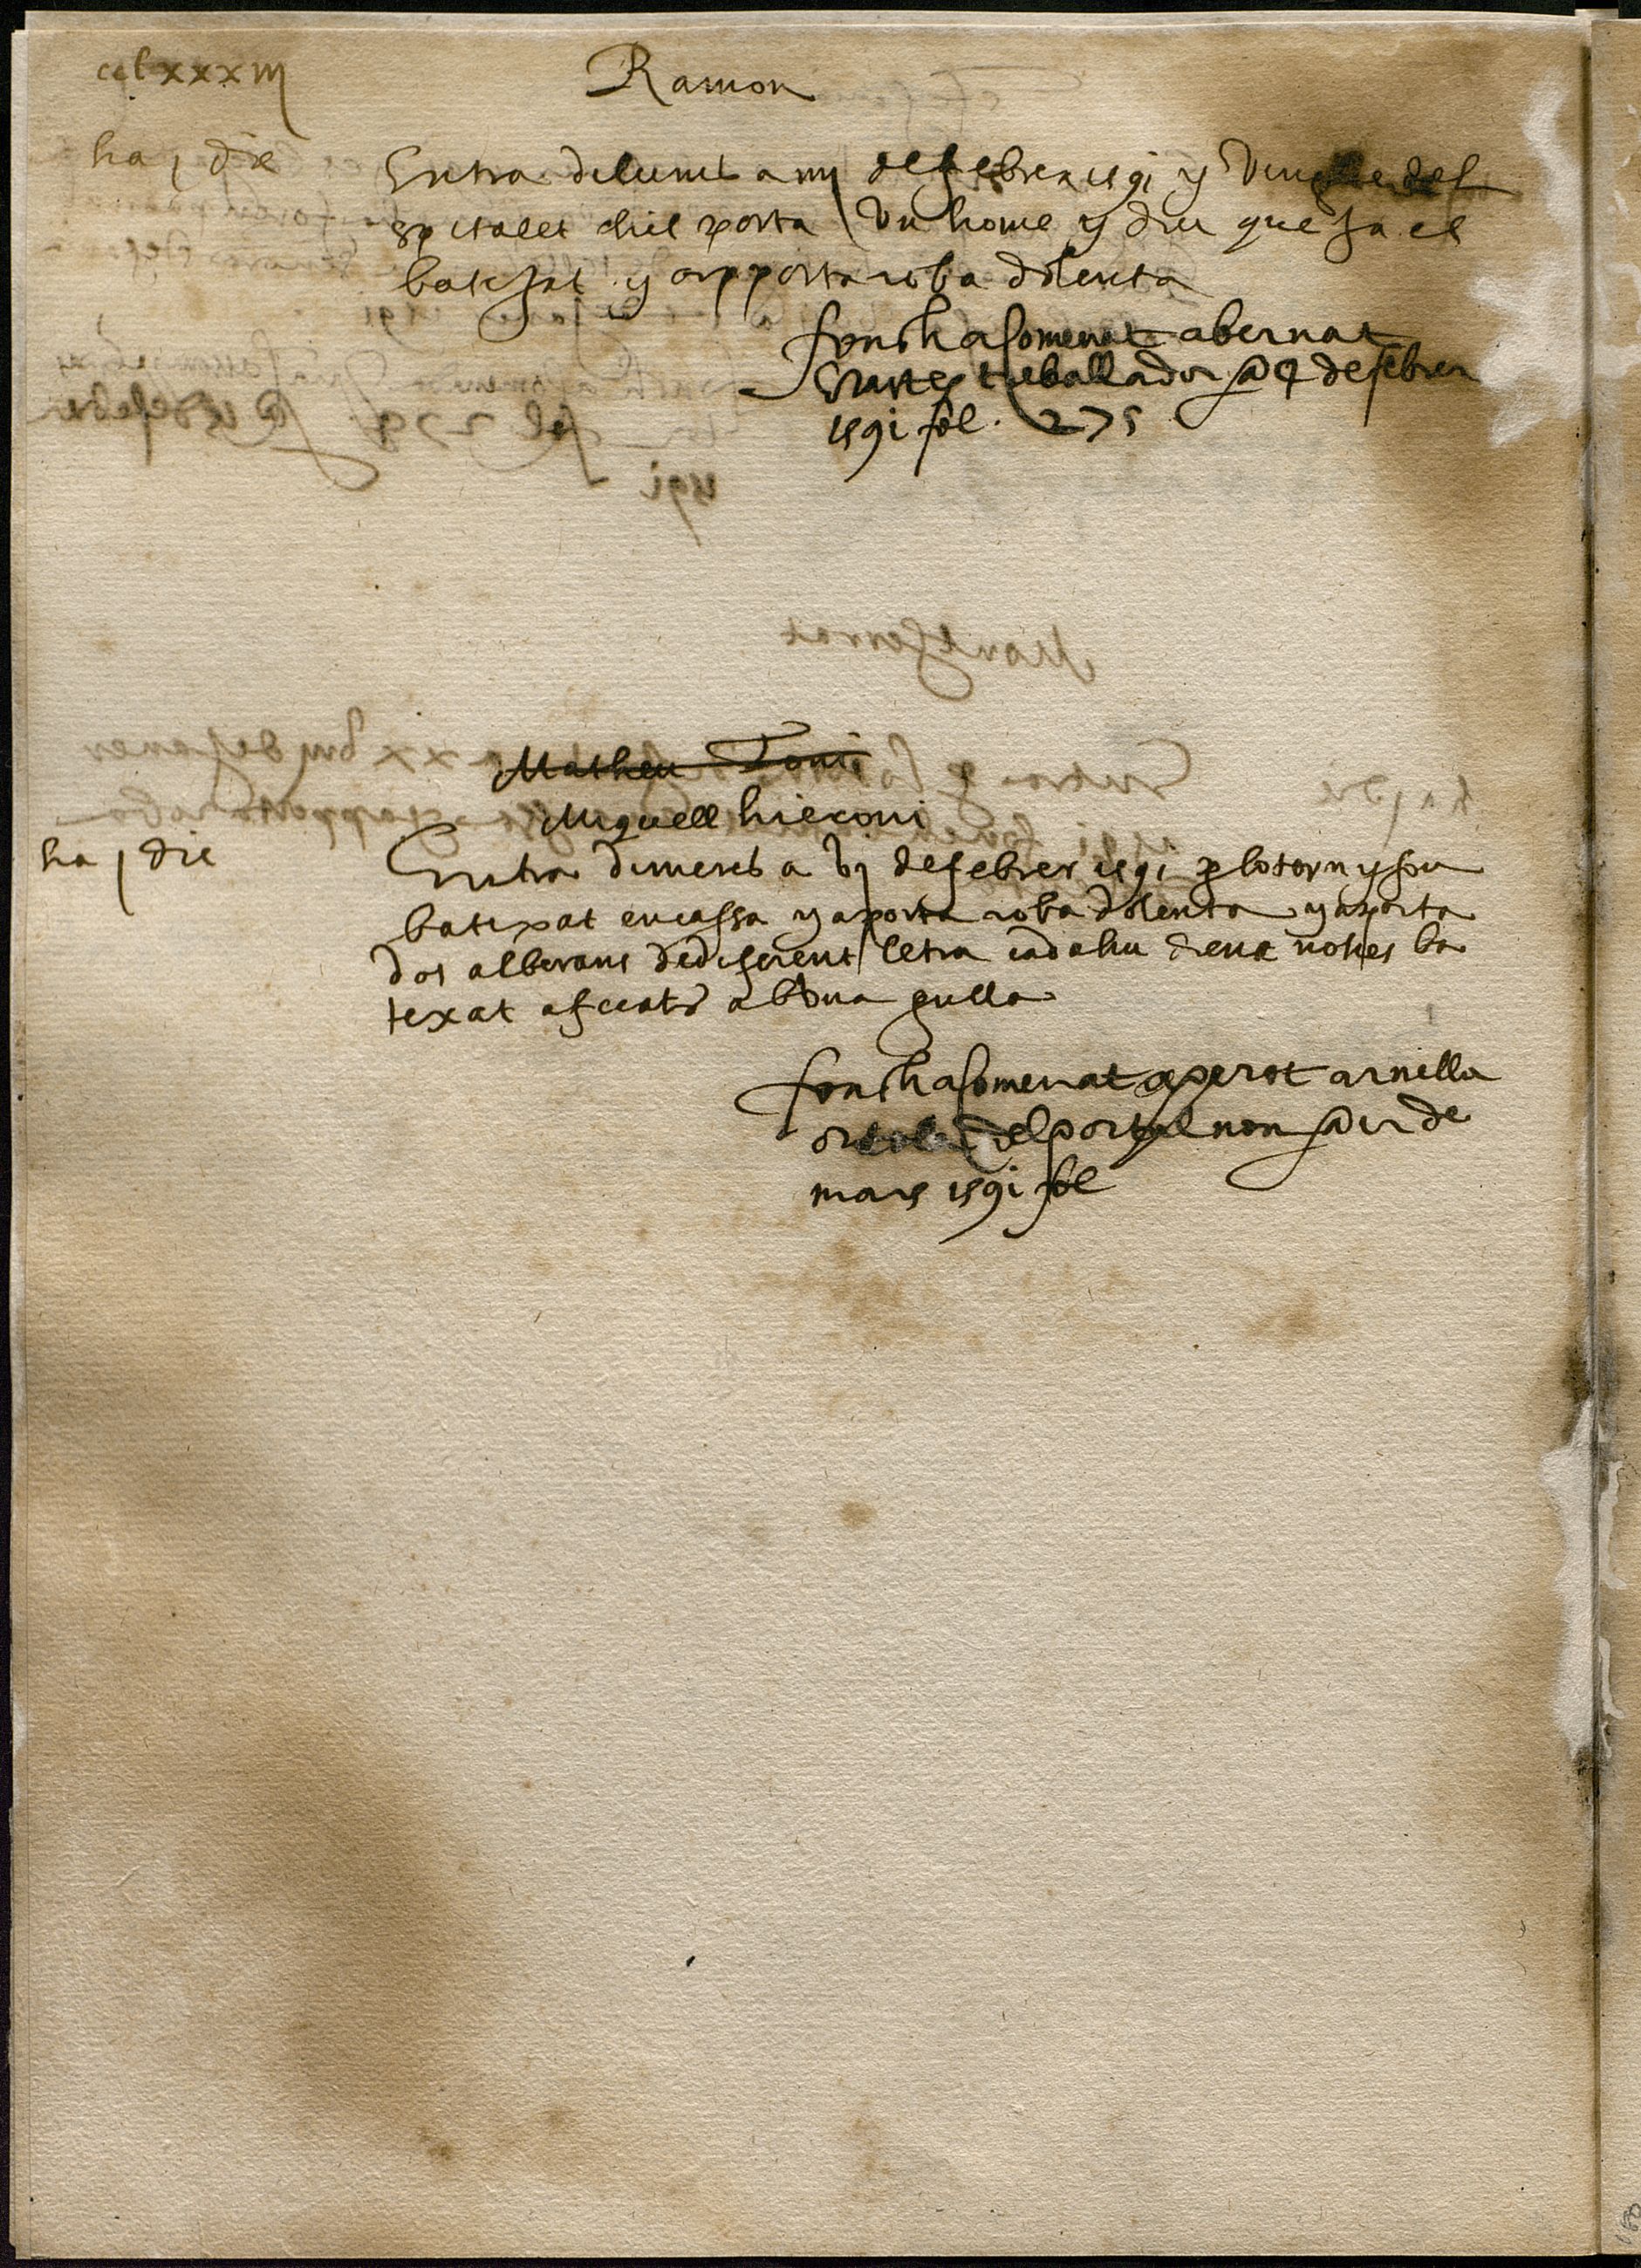 cclxxxiij
Ramon
ha j die
Entra dilluns a iiij de febrer 1591 y del
spitalet chil porta Un home y diu que ja es
batejat y apporta roba dolenta
fonch asomenat a bernat
treballador a 9 de febrer
1591 fol. 275
Matheu Toni
Miquell hieroni
ha j die
Entra dimecrs a vj de febrer 1591 p lo torn y fou
batexat en cassa y aporta roba dolenta y aporta
dos albarans de diferent letra cadahu diena no hes ba
texat a una gulla
fonch asomenat a perot arnella
ortola del portal nou a de
mars 1591 fol